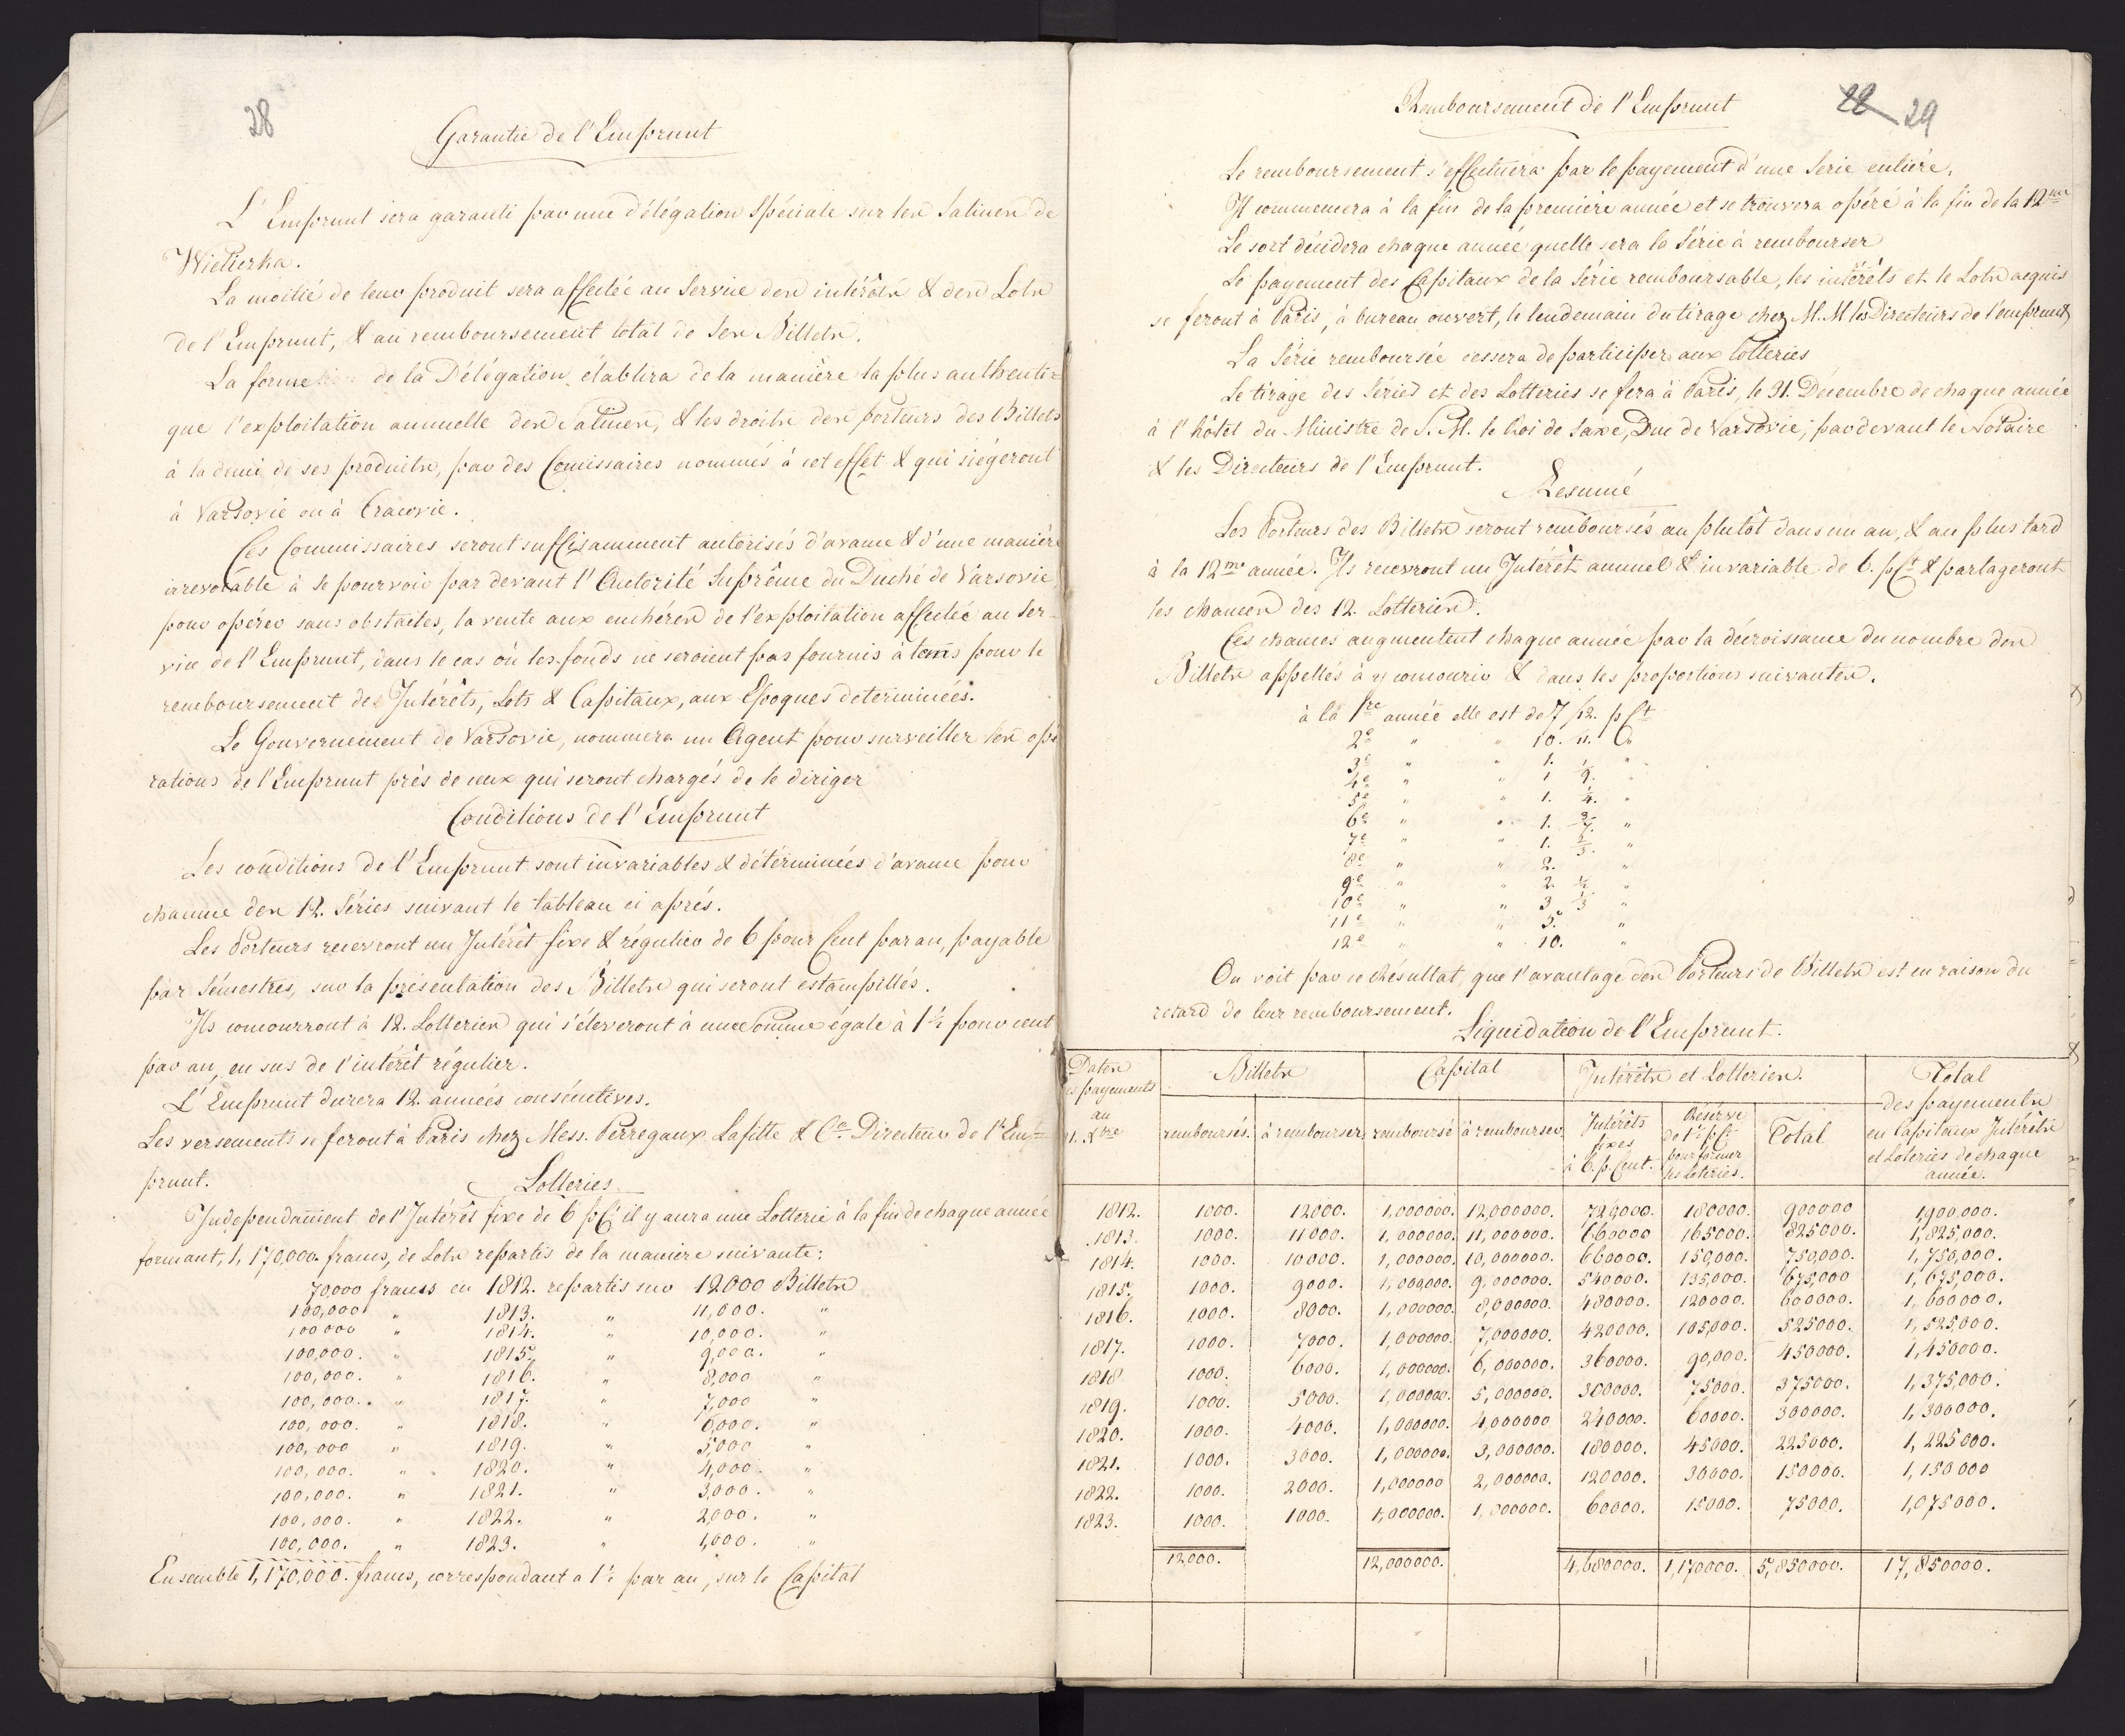 28
Garantie de l'Emprunt
L'Emprunt sera garanti par une délégation Spéciale sur les Salines de
Wieliczka.
La moitié de leur produit sera affectée au Service des intérêts & des Lots
de l'Emprunt, & au remboursement total de Ses Billets.
La forme de la Délégation établira de la manière la plus authenti=
que l'exploitation annuelle des Salines, & les droits des porteurs des Billets
à la demi de ses produits, par des Comissaires nommés à cet effet & qui siégeront
à Varsovie ou à Cracovie.
Ces Commissaires seront suffisamment autorisés d'avance & d'une manière
irrevocable à se pourvoir par devant l'Autorité Suprême du Duché de Varsovie,
pour opérer sans obstacles, la vente aux enchères de l'exploitation affectée au Ser-
vice de l'Emprunt, dans le cas où les fonds ne seroient pas fournis à tems pour le
remboursement des Intérêts, Lots & Capitaux, aux Epoques determinées.
Le Gouvernement de Varsovie, nommera un Agent pour surveiller les opé
rations de l'Emprunt près de ceux qui seront chargés de le diriger
Conditions de l'Emprunt
Les conditions de l'Emprunt sont invariables & déterminées d'avance pour
chacune des 12. Séries suivant le tableau ci après.
Les Porteurs recevront un Intérêt fixe & régulier de 6 pour Cent par an, payable
par Sémestres, sur la présentation des Billets qui seront estampillés.
Ils concourront à 12. Lotteries qui s'éleveront à une Somme égale à 1½ pour cent
par an, en sus de l'intérêt régulier.
L'Emprunt durera 12. années consécutives.
Les versements se feront à Paris chez Mess. Perregaux Lafitte & Cie Directeur de l'Em=
prunt.
Lotteries
Independament de l'Intérêt fixe de 6 pCt il y aura une Lotterie à la fin de chaque année
formant, 1,170,000 francs, de Lots repartis de la manière suivante:
70,000 francs en 1812. repartis sur 12000 Billets
100,000 " 1813. " 11,000. "
100 000 " 1814. " 10,000. "
100,000. " 1815. " 9,000. "
100,000. " 1816. " 8,000 "
100,000. " 1817. " 7,000 "
100,000. " 1818. " 6,000. "
100,000 " 1819. " 5,000 "
100,000. " 1820. " 4,000. "
100,000. " 1821. " 3,000. "
100,000. " 1822. " 2,000. "
100,000. " 1823. " 1,000. "
Ensemble 1,170,000. francs, correspondant a 1½ par an, sur le Capital
28 29
Remboursement de l'Emprunt
Le remboursement s'effectuera par le payement d'une Serie entière.
Il commencera à la fin de la première année et se trouvera opéré à la fin de la 12me
Le sort décidera chaque année quelle sera la Série à rembourser
Le payement des Capitaux de la Série remboursable, les intérêts et le Lots acquis
se feront à Paris, à bureau ouvert, le lendemain du tirage chez M.M les Directeurs de l'emprunt
La Série remboursée cessera de participer aux lotteries
Le tirage des Séries et des Lotteries se fera à Paris, le 31. Décembre de chaque année
à l'hôtel du Ministre de S.M. le Roi de Saxe, Duc de Varsovie; par devant le Notaire
& les Directeurs de l'Emprunt.
Resumé
Les Porteurs des Billets seront remboursés au plutôt dans un an, & au plus tard
à la 12me année. Ils recevront un Intérêt annuel & invariable de 6. pCt & partageront
les chances des 12. Lotteries.
Ces chances augmentent chaque année par la décroissance du nombre des
Billets appellés à y concourir & dans les proportions suivantes.
à la 1re année elle est de 7/12. pCt
2e " " 10. 11.
3e " " 1. "
4e " " 1 1/9. "
5e " " 1. 1/4. "
6e " " 1. 3/7. "
7e " " 1. 2/3. "
8e " " 2. "
9e " " 2. 1/2 "
10e " " 3 1/3 "
11e " " 5. "
12e " " 10. "
On voit par ce Résultat, que l'avantage des Porteurs de Billets est en raison du
retard de leur remboursement.
Liquidation de l'Emprunt.
Dates Billets Capital Intérêts et Lotteries. Total
payements des payements
au en Capitaux Intérêts
31. Xbre remboursés. à rembourser remboursé à rembourser Intérêts fixes à 6. p. Cent. Réserve de 1½ pCt pour former les loteries. Total et Loteries de chaque
année.
1812. 1000. 12000. 1,000000. 12,000000. 720000. 180000. 900000 1,900,000.
1813. 1000. 11000. 1,000000. 11,000000. 660000 165000. 825000. 1,825,000.
1814. 1000. 10000. 1,000000. 10,000000. 660000. 150,000. 750,000. 1,750,000.
1815. 1000. 9000. 1,000,000. 9,000000. 540000. 135,000. 675,000 1,675,000.
1816. 1,000. 8000. 1,000000. 8,000000. 480000. 120000. 600000. 1,600000.
1817. 1000. 7000. 1,000000. 7,000000. 420000. 105,000. 525000. 1,525,000.
1818 1000. 6000. 1,000000. 6,000000. 360000. 90,000. 450000. 1,450000.
1819. 1000. 5000. 1,000000. 5,000000. 300000. 75000. 375000. 1,375,000.
1820. 1000. 4000. 1,000000. 4,000000 240000. 60000. 300000. 1,300000.
1821. 1000. 3000. 1,000000. 3,000000. 180000. 45000. 225000. 1,225000.
1822. 1000. 2000. 1,000000 2,000000. 120000. 30000. 150000. 1,150000
1823. 1000. 1000. 1,000000. 1,000000. 60000. 15000. 75000. 1,075000.
12,000. 12,000000. 4,680000. 1,170000. 5,850000. 17,850000.